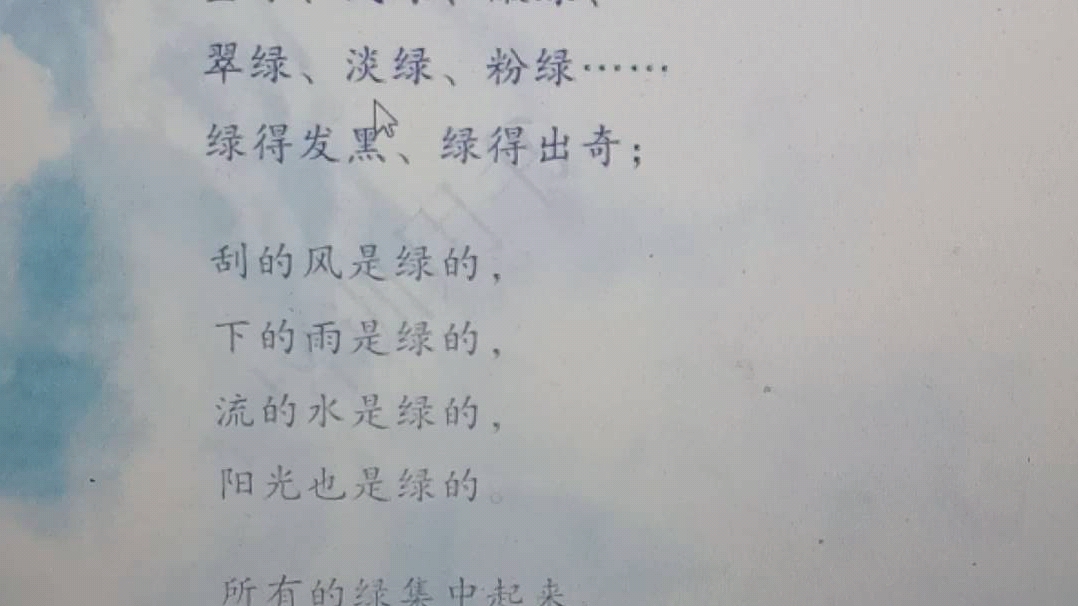 翠绿、淡绿、粉绿……
绿得发黑、绿得出奇；
刮的风是绿的，
下的雨是绿的，
流的水是绿的，
阳光也是绿的。
所有的绿集中起来